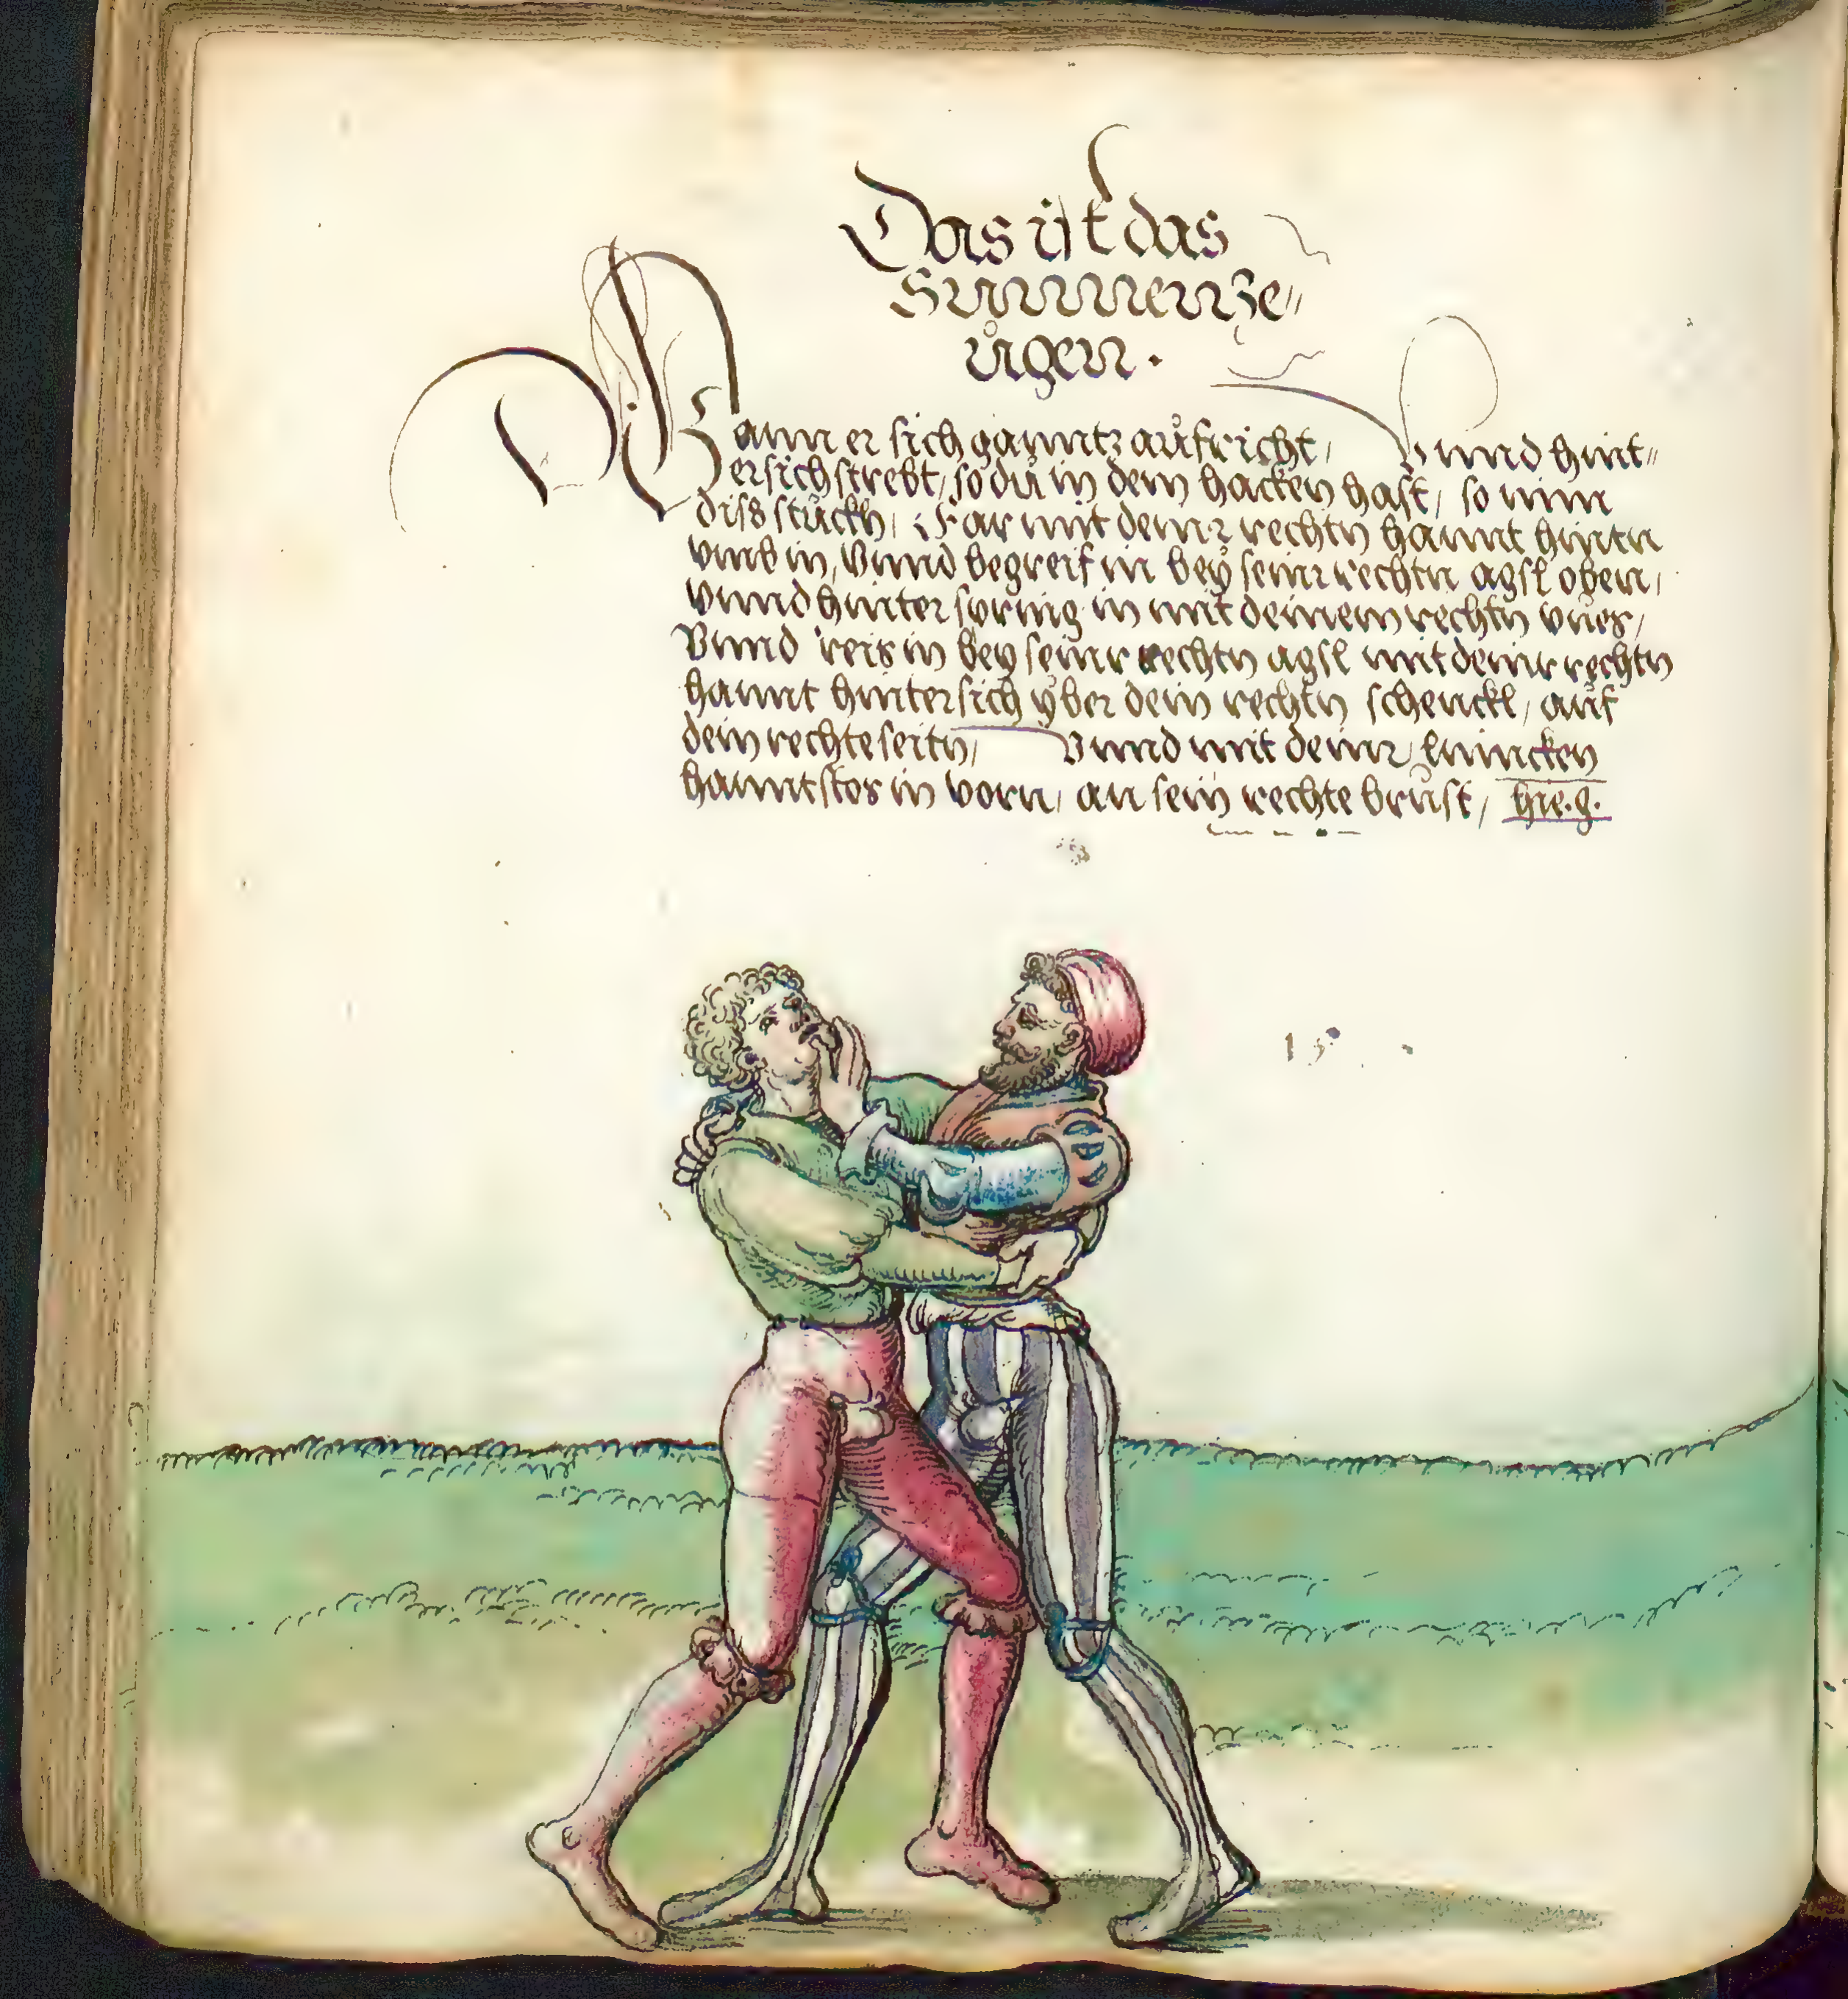 Das ist das
Sunnenze„
ůgen .
Wann er sich ganntz aůfricht / Vnnd hint„
ersich strebt / so dů in dem hacken hast / so nim
diss stůckh / Far mit deinr rechtn hannt hintn
vmb in / Vnnd begreif in beÿ seinr rechtn agsl oben /
Vnnd hinter spring in mit deinem rechtn vůes /
Vnnd reis in bey seinr rechtn agsl mit deinr rechtn
hannt hintersich ÿber dein rechtn schenckl / aůf
dein rechte seitn / Vnnd mit deinr linncken
hannt stos in vorn / an sein rechte brůst / hie .g.